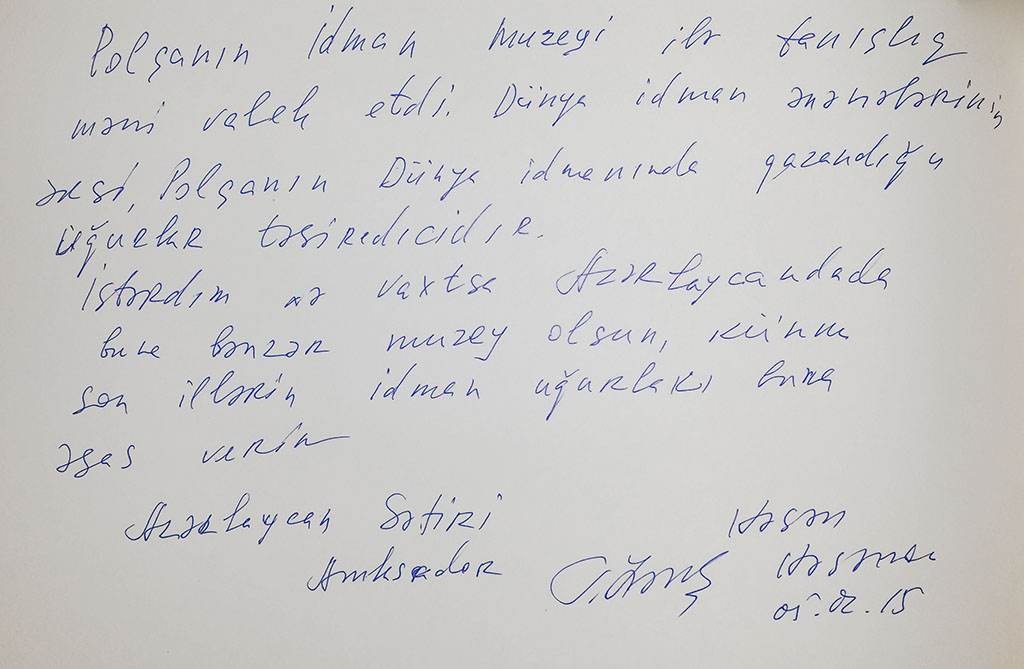 Polşanın idman muzeyi ilə tanışlıq
məni valeh etdi. Dünya idman ənənələrinin
əksi, Polşanın Dünya idmanında qazandığı
uğurlar təsiredicidir.
İstərdim nə vaxtsa Azərbaycandada
buna bənzər muzey olsun, künki
son illərin idman uğurları buna
əsas verir
Azərbaycan Səfiri
Həsən
Ambsador
Həsənov
05.02.15